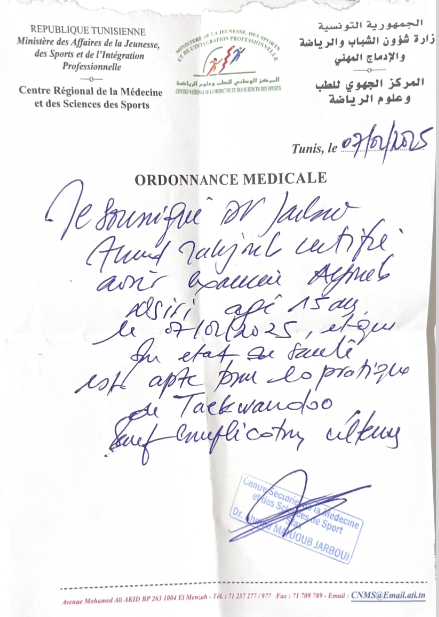 REPUBLIQUE TUNISIENNE
Ministère des Affaires de la Jeunesse,
des Sports et de l'Intégration
Professionnelle
Centre Régional de la Médecine
et des Sciences des Sports
MINISTERE DE LA JEUNESSE, DES SPORTS
ET DE L'INTEGRATION PROFESSIONNELLE
المركز الوطني للطب وعلوم الرياضة
CENTRE NATIONAL DE LA MEDECINE ET DES SCIENCES DES SPORTS
الجمهورية التونسية
زارة شؤون الشباب والرياضة
والإدماج المهني
المركز الجهوي للطب
وعلوم الرياضة
Tunis, le 07/02/2025
ORDONNANCE MEDICALE
Je soussigné Dr Jarboui
certifie
avoir examiné
agé 15 ans
le 07/02/2025, et que
son état de santé
est apte pour la pratique
de Taekwandoo
sauf complication
Centre Sectoriel de la Médecine
et des Sciences de Sport
Sfax
Dr. MAHJOUB JARBOUI
Avenue Mohamed Ali AKID BP 263 1004 El Menzah - Tél. : 71 237 277 / 977 Fax : 71 709 789 - Email : CNMS@Email.ati.tn